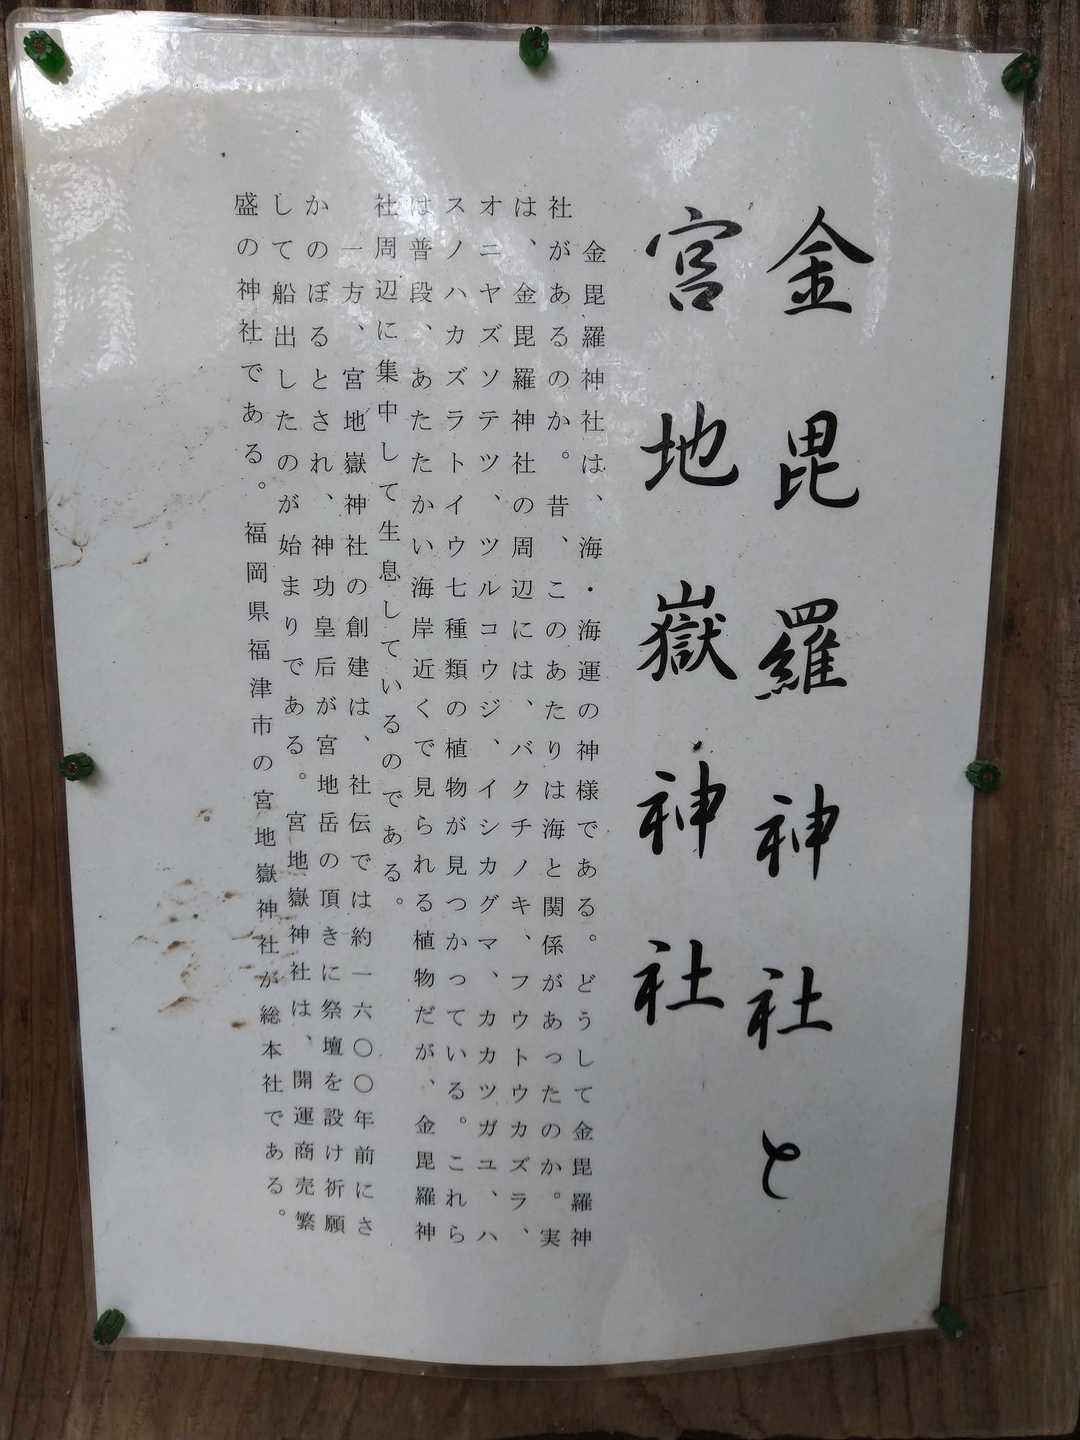 金毘羅神社と
宮地嶽神社
金毘羅神社は、海・海運の神様である。どうして金毘羅神
社があるのか。昔、このあたりは海と関係があったのか。実
は、金毘羅神社の周辺には、バクチノキ、フウトウカズラ、
オニヤズソテツ、ツルコウジ、イシカグマ、カカツガユ、ハ
スノハカズラトイウ七種類の植物が見つかっている。これら
は普段、あたたかい海岸近くで見られる植物だが、金毘羅神
社周辺に集中して生息しているのである。
一方、宮地嶽神社の創建は、社伝では約一六〇〇年前にさ
かのぼるとされ、神功皇后が宮地岳の頂きに祭壇を設け祈願
して船出したのが始まりである。宮地嶽神社は、開運商売繁
盛の神社である。福岡県福津市の宮地嶽神社が総本社である。